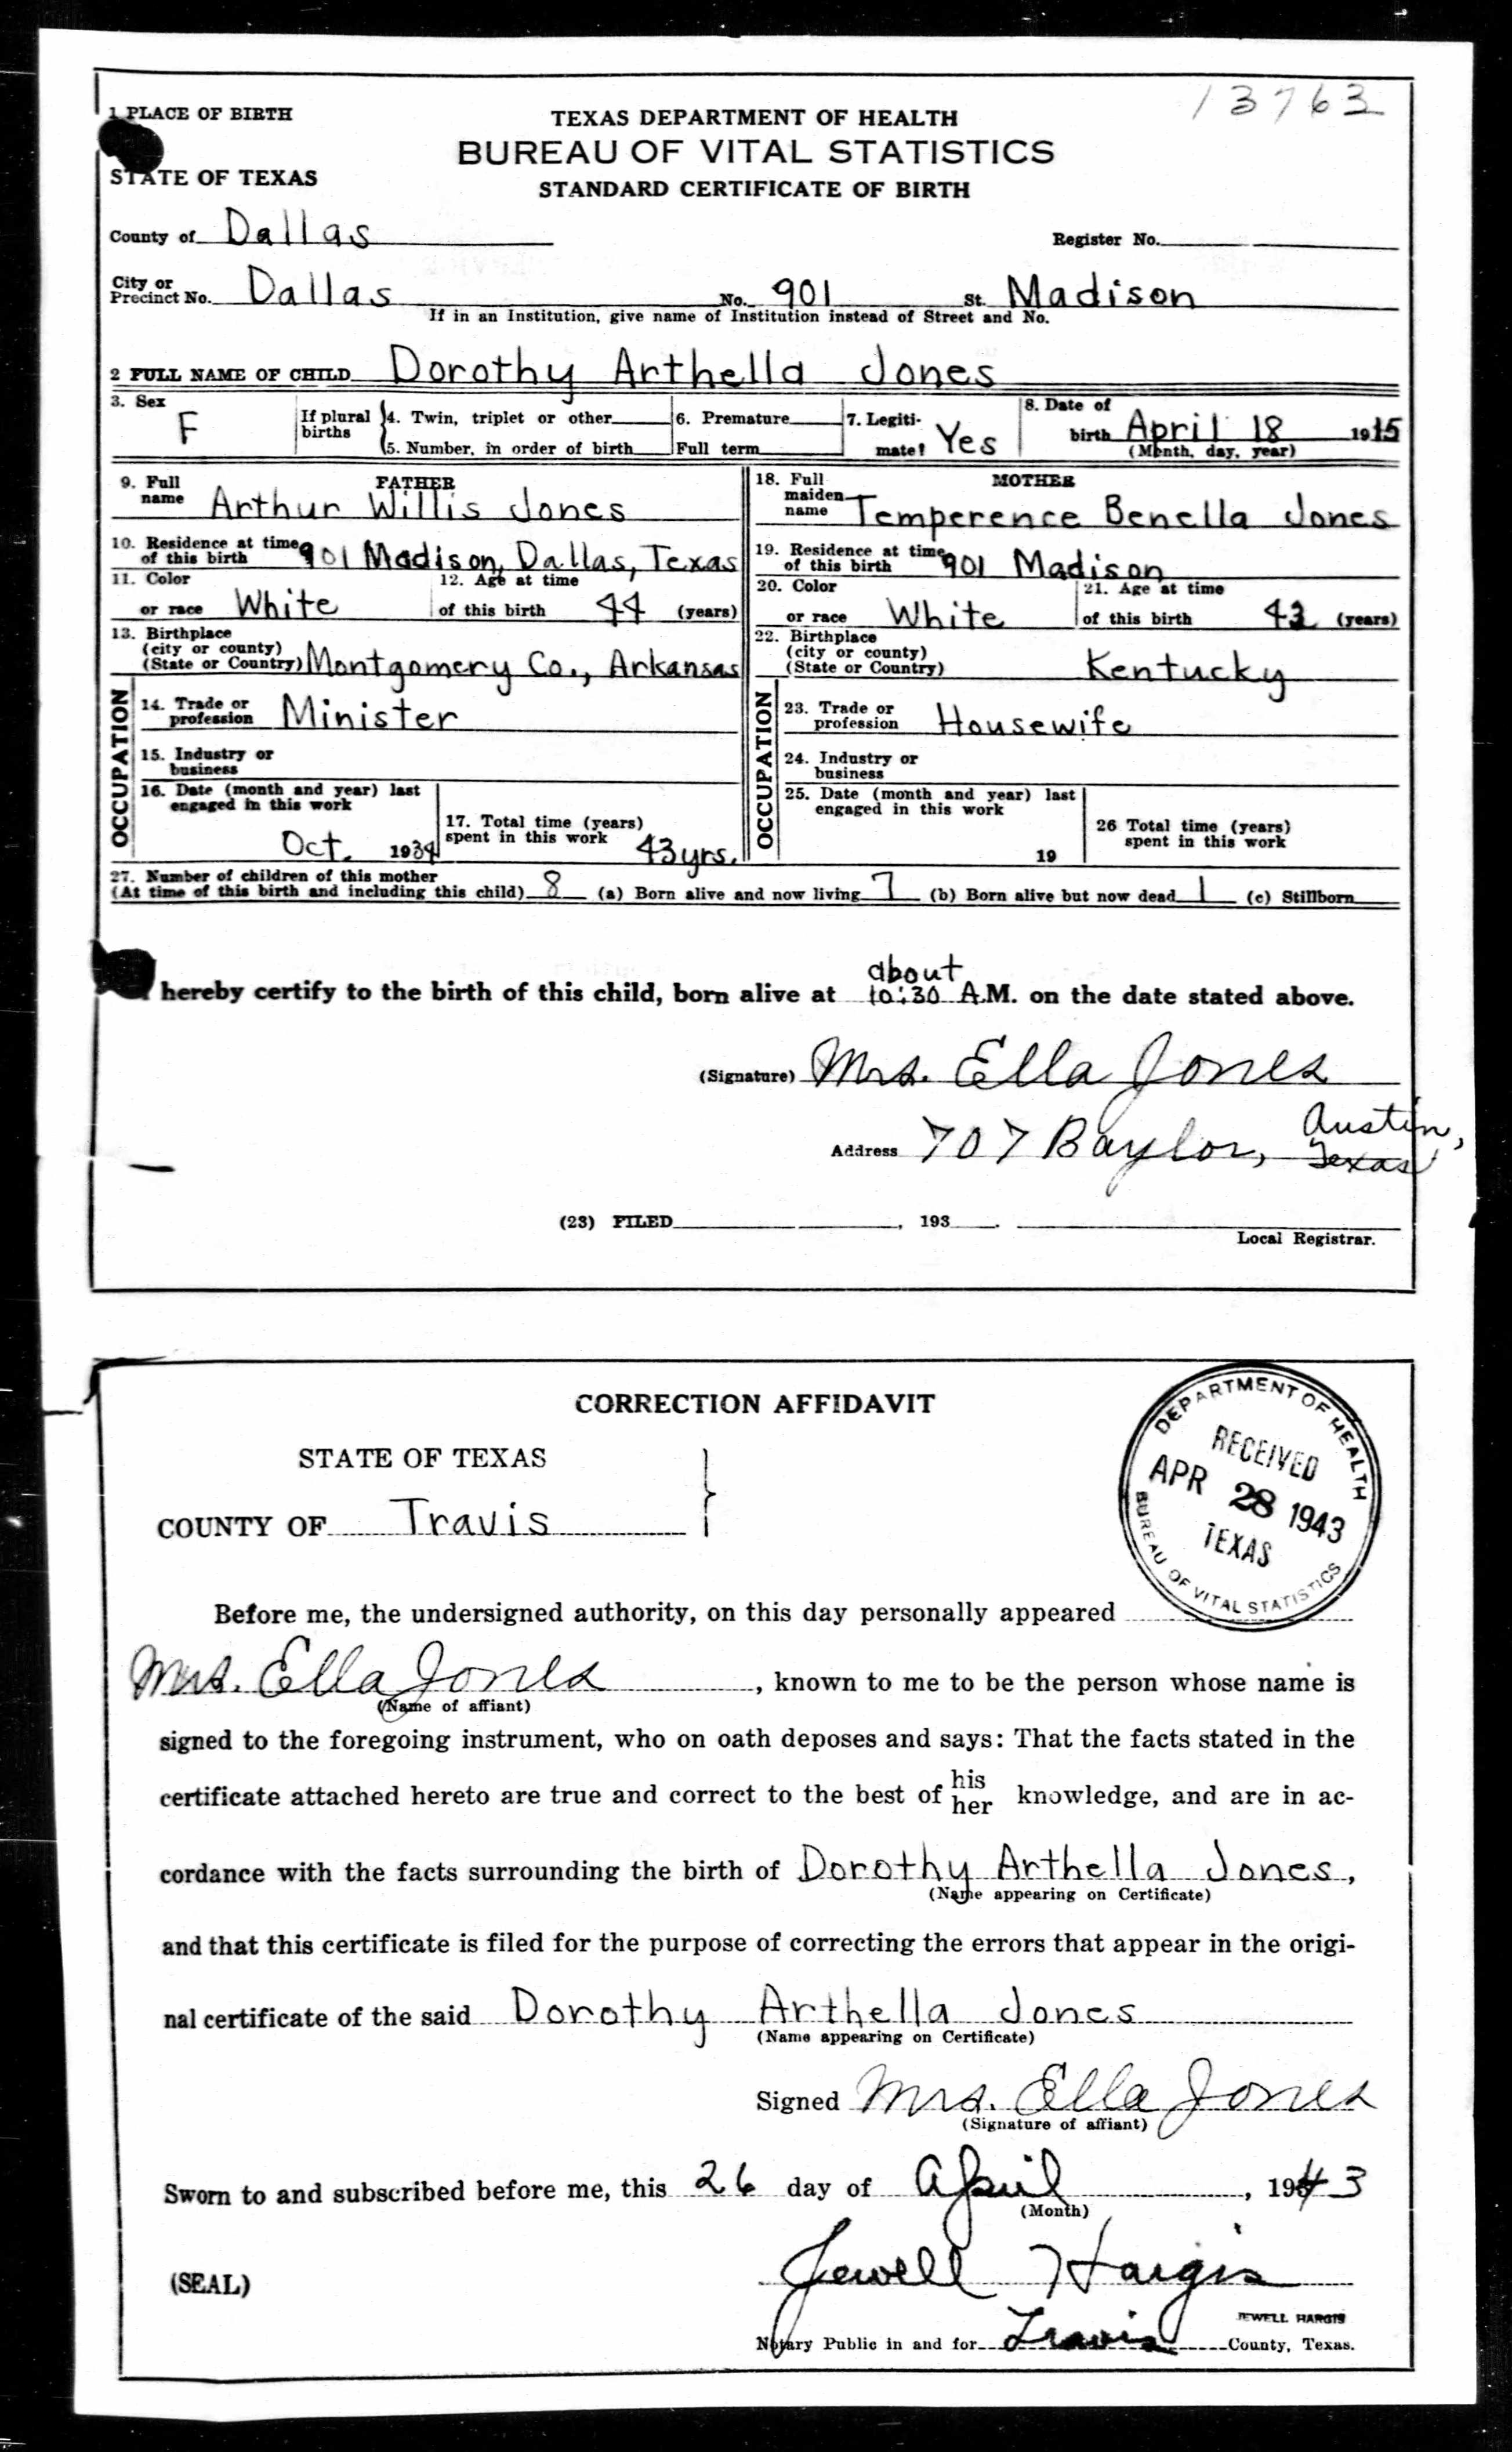 13763
1 PLACE OF BIRTH
TEXAS DEPARTMENT OF HEALTH
BUREAU OF VITAL STATISTICS
STATE OF TEXAS
STANDARD CERTIFICATE OF BIRTH
County of Dallas Register No.
City or Precinct No. Dallas No. 901 St. Madison
If in an Institution, give name of Institution instead of Street and No.
2 FULL NAME OF CHILD Dorothy Arthella Jones
3. Sex F If plural births 4. Twin, triplet or other 6. Premature 7. Legiti- 8. Date of
5. Number, in order of birth Full term mate? Yes birth April 18 1915
(Month, day, year)
FATHER
9. Full name Arthur Willis Jones
10. Residence at time of this birth 901 Madison, Dallas, Texas
11. Color or race White 12. Age at time of this birth 44 (years)
13. Birthplace (city or county) (State or Country) Montgomery Co., Arkansas
OCCUPATION
14. Trade or profession Minister
15. Industry or business
16. Date (month and year) last engaged in this work Oct. 1934
17. Total time (years) spent in this work 43 yrs.
MOTHER
18. Full maiden name Temperence Benella Jones
19. Residence at time of this birth 901 Madison
20. Color or race White 21. Age at time of this birth 42 (years)
22. Birthplace (city or county) (State or Country) Kentucky
OCCUPATION
23. Trade or profession Housewife
24. Industry or business
25. Date (month and year) last engaged in this work 19
26 Total time (years) spent in this work
27. Number of children of this mother
(At time of this birth and including this child) 8 (a) Born alive and now living 7 (b) Born alive but now dead 1 (c) Stillborn
about
hereby certify to the birth of this child, born alive at 10:30 A.M. on the date stated above.
(Signature) Mrs. Ella Jones
Address 707 Baylor, Austin, Texas
(23) FILED , 193 .
Local Registrar.
CORRECTION AFFIDAVIT
DEPARTMENT OF HEALTH
RECEIVED
APR 28 1943
TEXAS
BUREAU OF VITAL STATISTICS
STATE OF TEXAS
COUNTY OF Travis
Before me, the undersigned authority, on this day personally appeared
Mrs. Ella Jones, known to me to be the person whose name is
(Name of affiant)
signed to the foregoing instrument, who on oath deposes and says: That the facts stated in the
certificate attached hereto are true and correct to the best of his her knowledge, and are in ac-
cordance with the facts surrounding the birth of Dorothy Arthella Jones,
(Name appearing on Certificate)
and that this certificate is filed for the purpose of correcting the errors that appear in the origi-
nal certificate of the said Dorothy Arthella Jones
(Name appearing on Certificate)
Signed Mrs. Ella Jones
(Signature of affiant)
Sworn to and subscribed before me, this 26 day of April, 1943
(Month)
Jewell Hargis
(SEAL)
JEWELL HARGIS
Notary Public in and for Travis County, Texas.